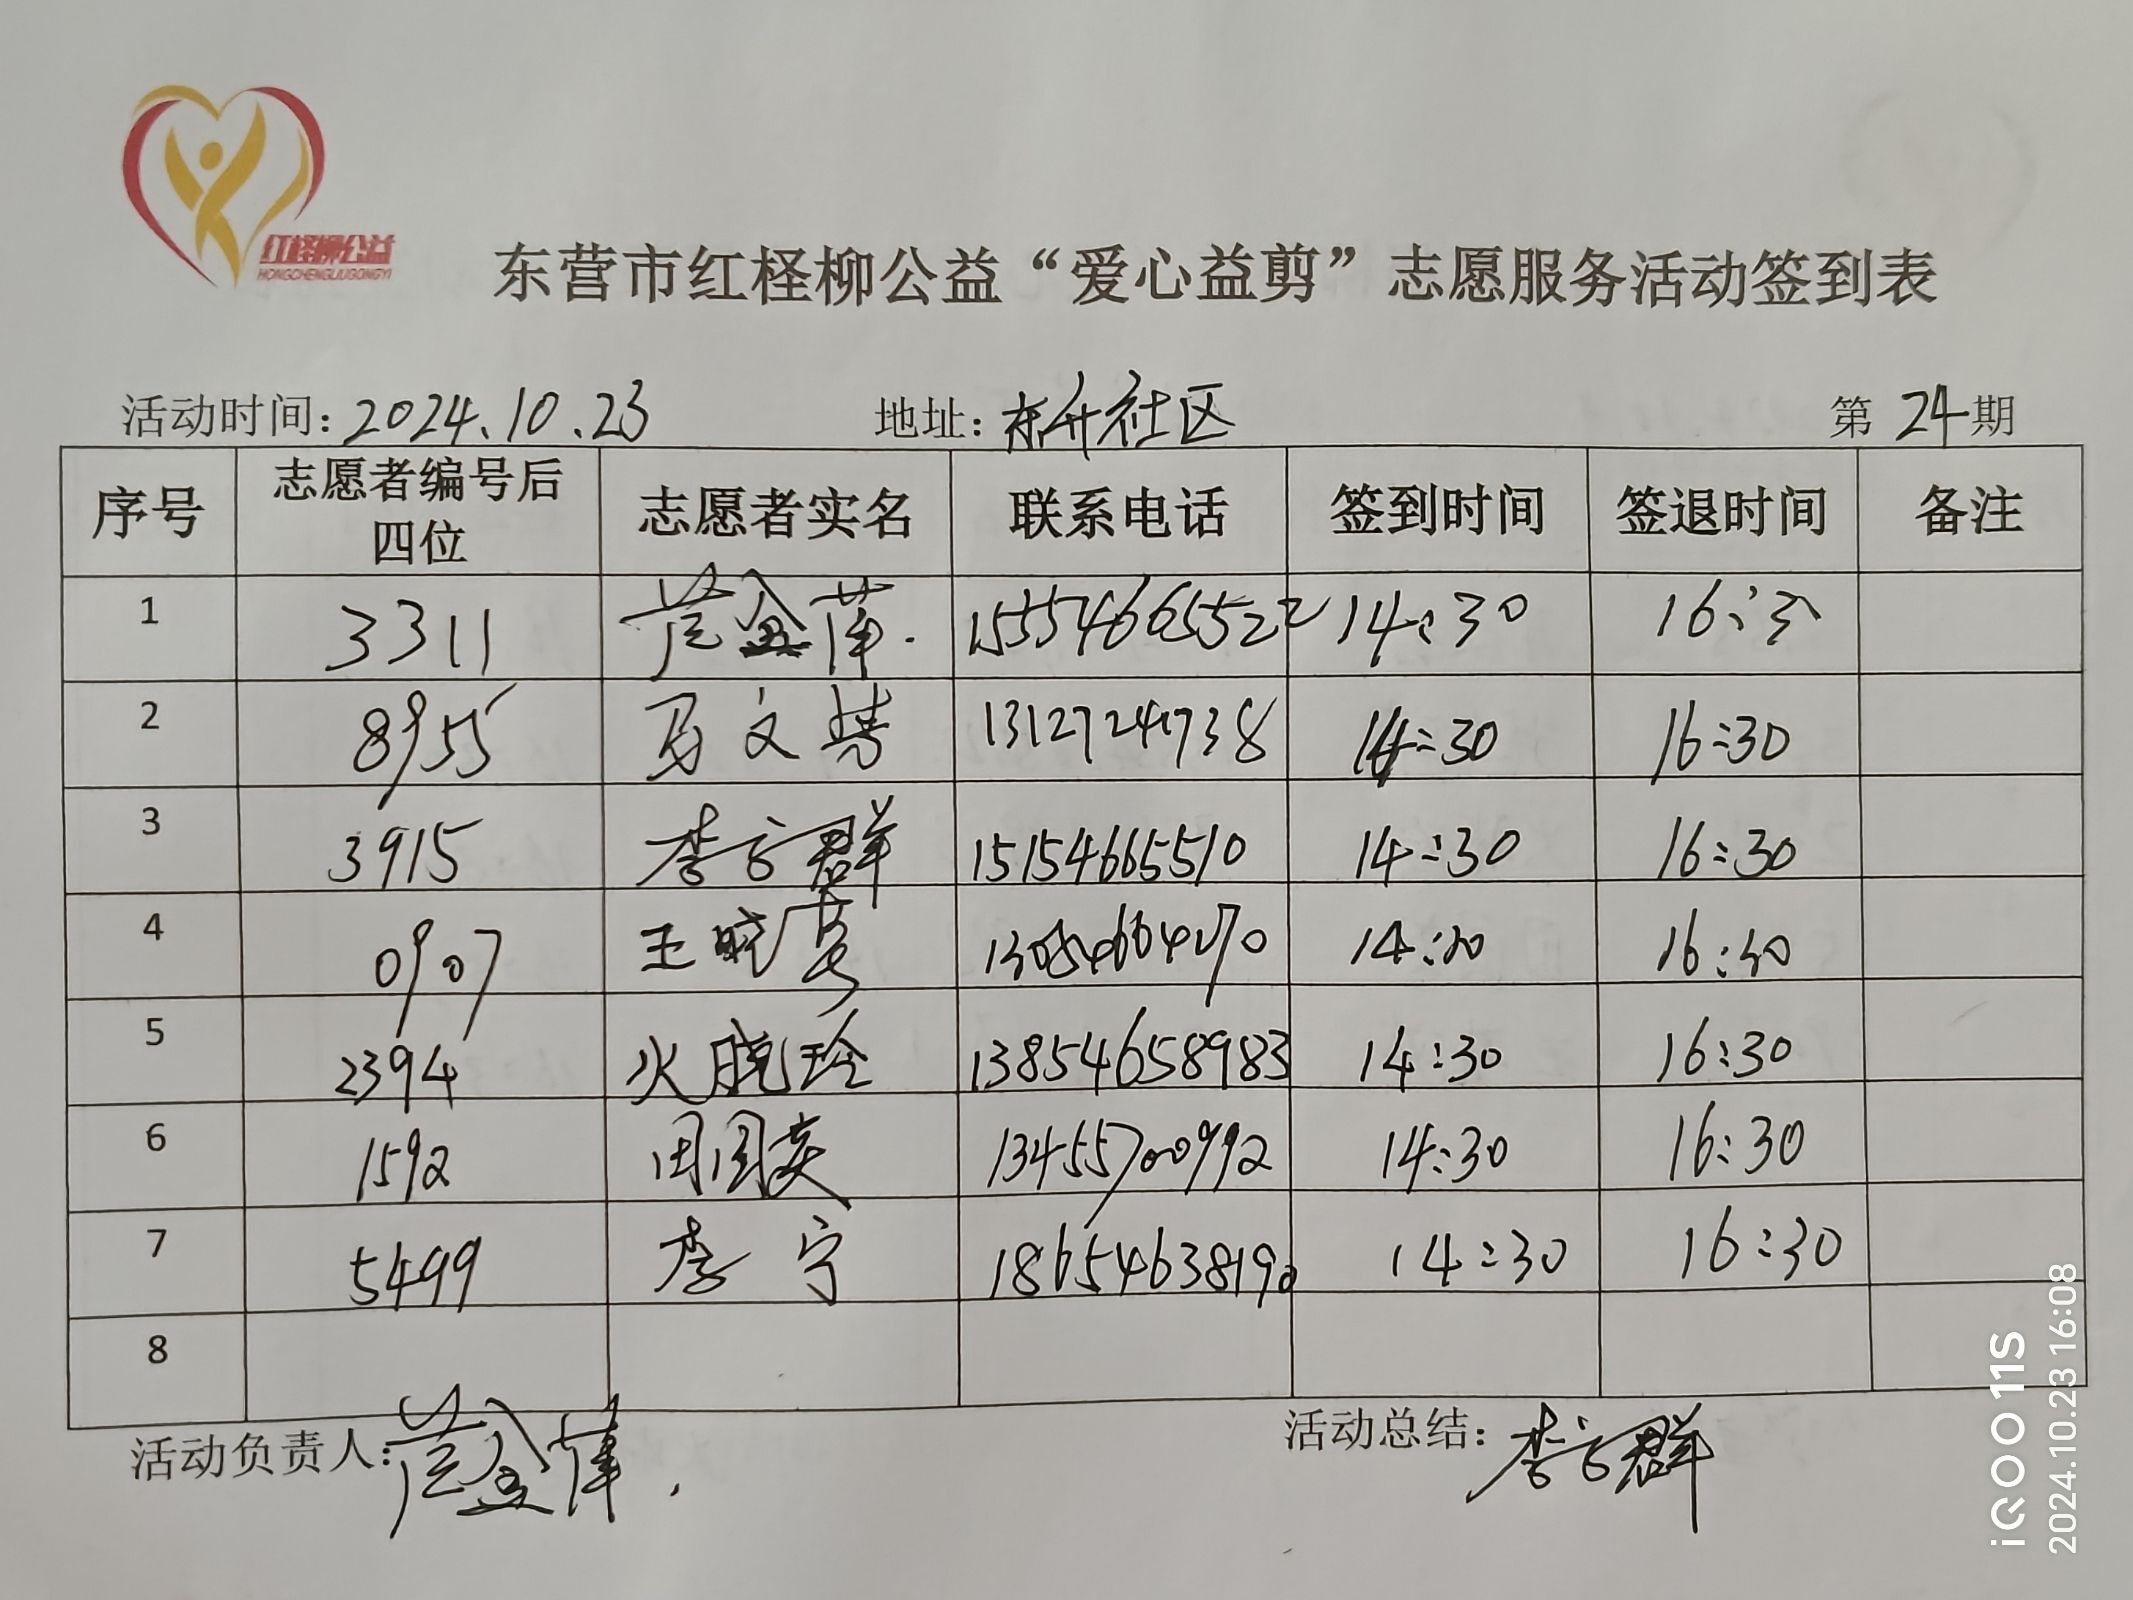 红柽柳公益
HONGCHENGLIUGONGYI
东营市红柽柳公益“爱心益剪”志愿服务活动签到表
活动时间：2024.10.23 地址：东升社区 第 24 期
序号 志愿者编号后四位 志愿者实名 联系电话 签到时间 签退时间 备注
1 3311 15554665522 14:30 16:30
2 8955 马文 13127241738 14:30 16:30
3 3915 李方群 15154665510 14:30 16:30
4 0907 王晓 14:30 16:30
5 2394 火晓玲 13854658983 14:30 16:30
6 1592 田国英 13455700992 14:30 16:30
7 5499 李宁 18654638190 14:30 16:30
8
活动负责人： 活动总结：李方群
iQOO 11S
2024.10.23 16:08